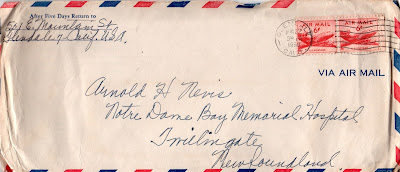 After Five Days Return to
Glendale 7 Calif. U.S.A.
AIR MAIL AIR MAIL
6¢ 6¢
VIA AIR MAIL
Arnold H Nevis
Notre Dame Bay Memorial Hospital
Twillingate
Newfoundland